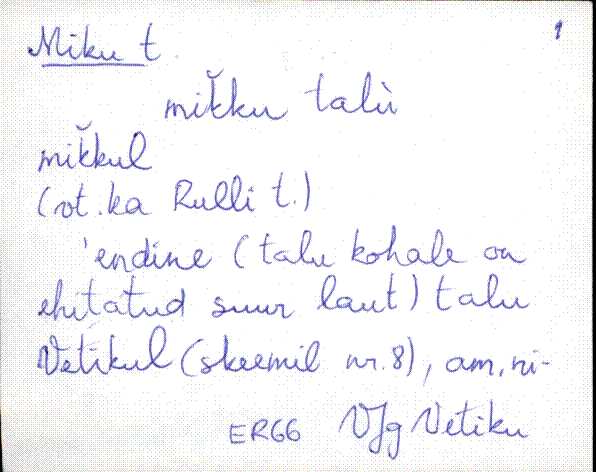 1
Miku t.
mik̆ku talù
mik̆kul
(vt. ka Rulli t.)
'endine (talu kohale on
ehitatud suur laut) talu
Vetikul (skeemil nr. 8), am, ni-
ER66 VJg Vetiku